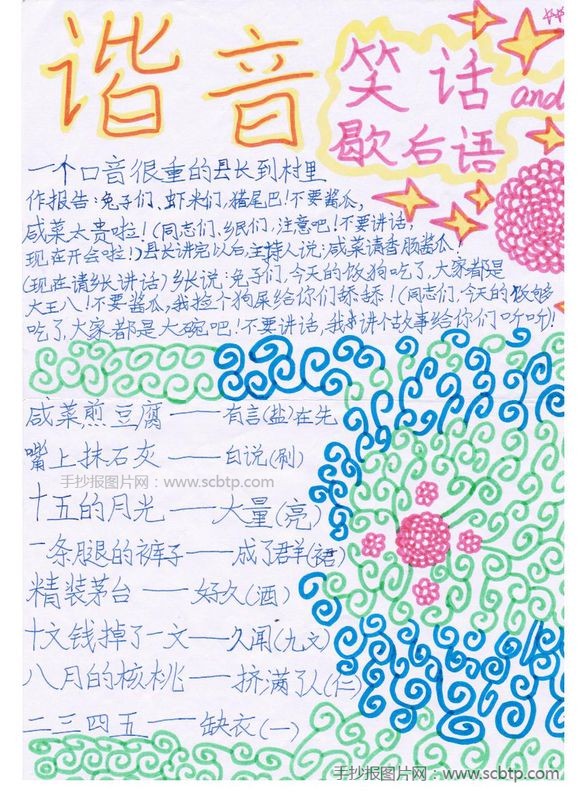 谐音
笑话 and
歇后语
一个口音很重的县长到村里
作报告：兔子们、虾米们，猪尾巴！不要酱瓜，
咸菜太贵啦！（同志们、乡民们，注意吧！不要讲话，
现在开会啦！）县长讲完以后，主持人说：咸菜请香肠酱瓜！
（现在请乡长讲话）乡长说：兔子们，今天的饭狗吃了，大家都是
大王八！不要酱瓜，我捡个狗屎给你们舔舔！（同志们，今天的饭够
吃了，大家都是大碗吧！不要讲话，我来讲个故事给你们听听）！
咸菜煎豆腐——有言（盐）在先
嘴上抹石灰——白说（刷）
手抄报图片网：www.scbtp.com
十五的月光——大量（亮）
一条腿的裤子——成了群（裙）
精装茅台——好久（酒）
十文钱掉了一文——久闻（九文）
八月的核桃——挤满了人（仁）
二三四五——缺衣（一）
手抄报图片网：www.scbtp.com